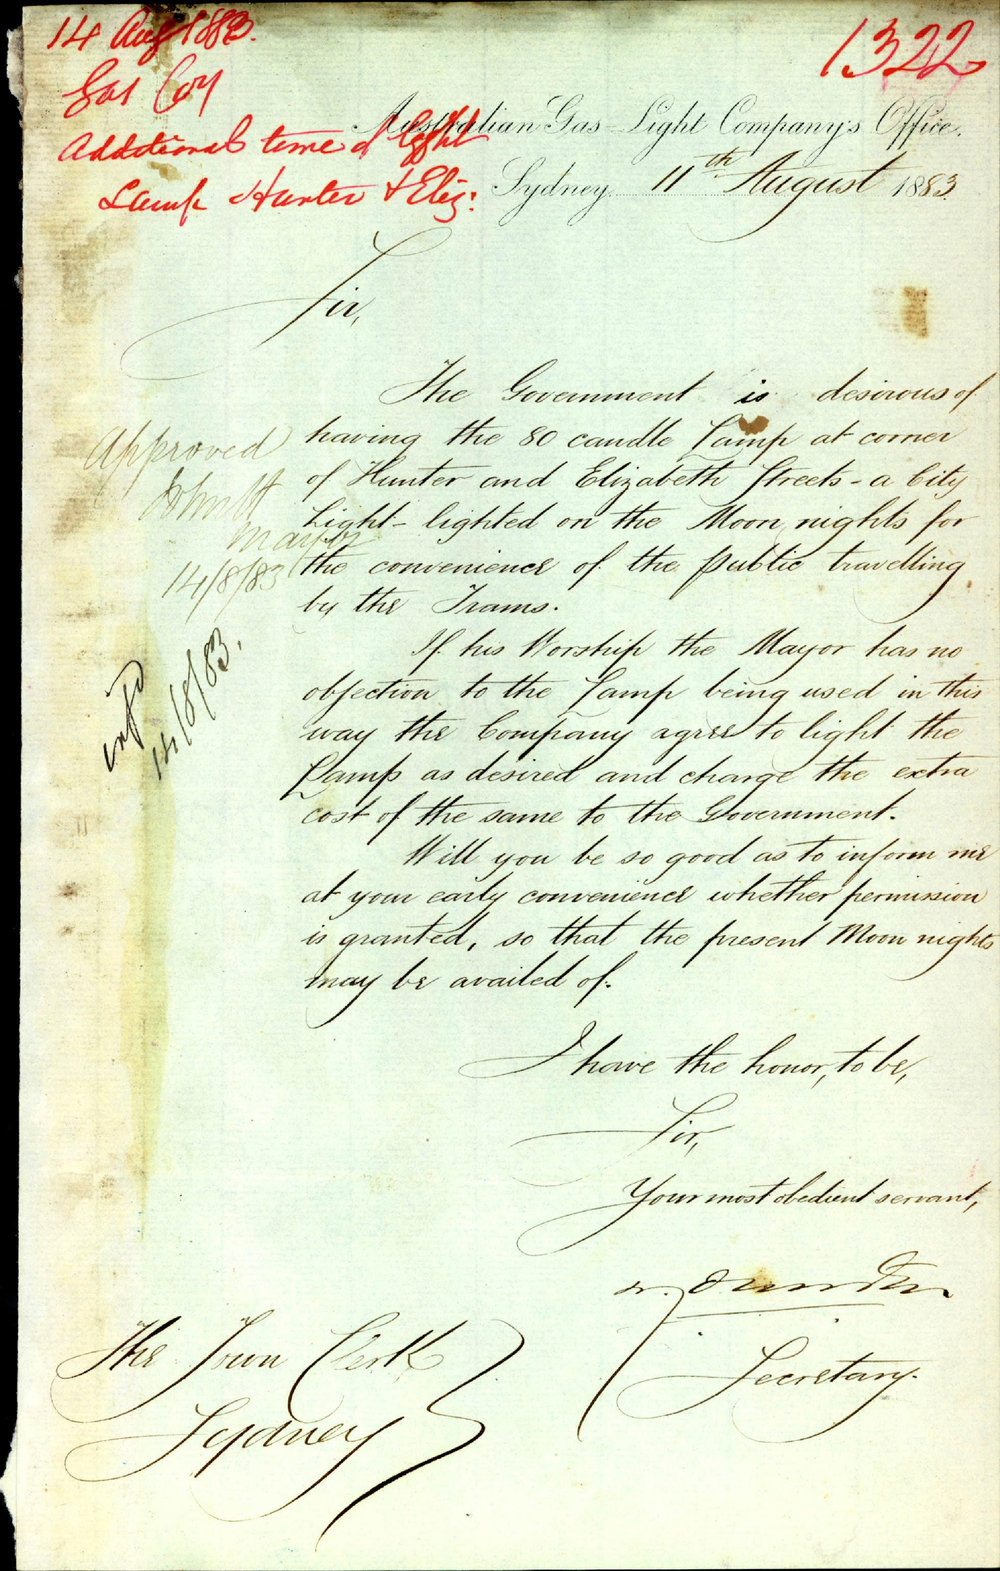 14 Aug 1883.
1322
Gas Coy
Additional time of Light
Lamp Hunter & Eliz:
Australian Gas-Light Company's Office,
Sydney 11th August 1883
Sir,
The Government is desirous of
having the 80 candle Lamp at corner
of Hunter and Elizabeth Streets - a City
Light - lighted on the Moon nights for
the convenience of the Public travelling
by the Trams.
If his Worship the Mayor has no
objection to the Lamp being used in this
way the Company agree to light the
Lamp as desired and charge the extra
cost of the same to the Government.
Will you be so good as to inform me
at your early convenience whether permission
is granted, so that the present Moon nights
may be availed of.
I have the honor, to be,
Sir,
Your most obedient servant,
Secretary.
The Town Clerk
Sydney
Approved
John H
Mayor
14/8/83
14/8/83.